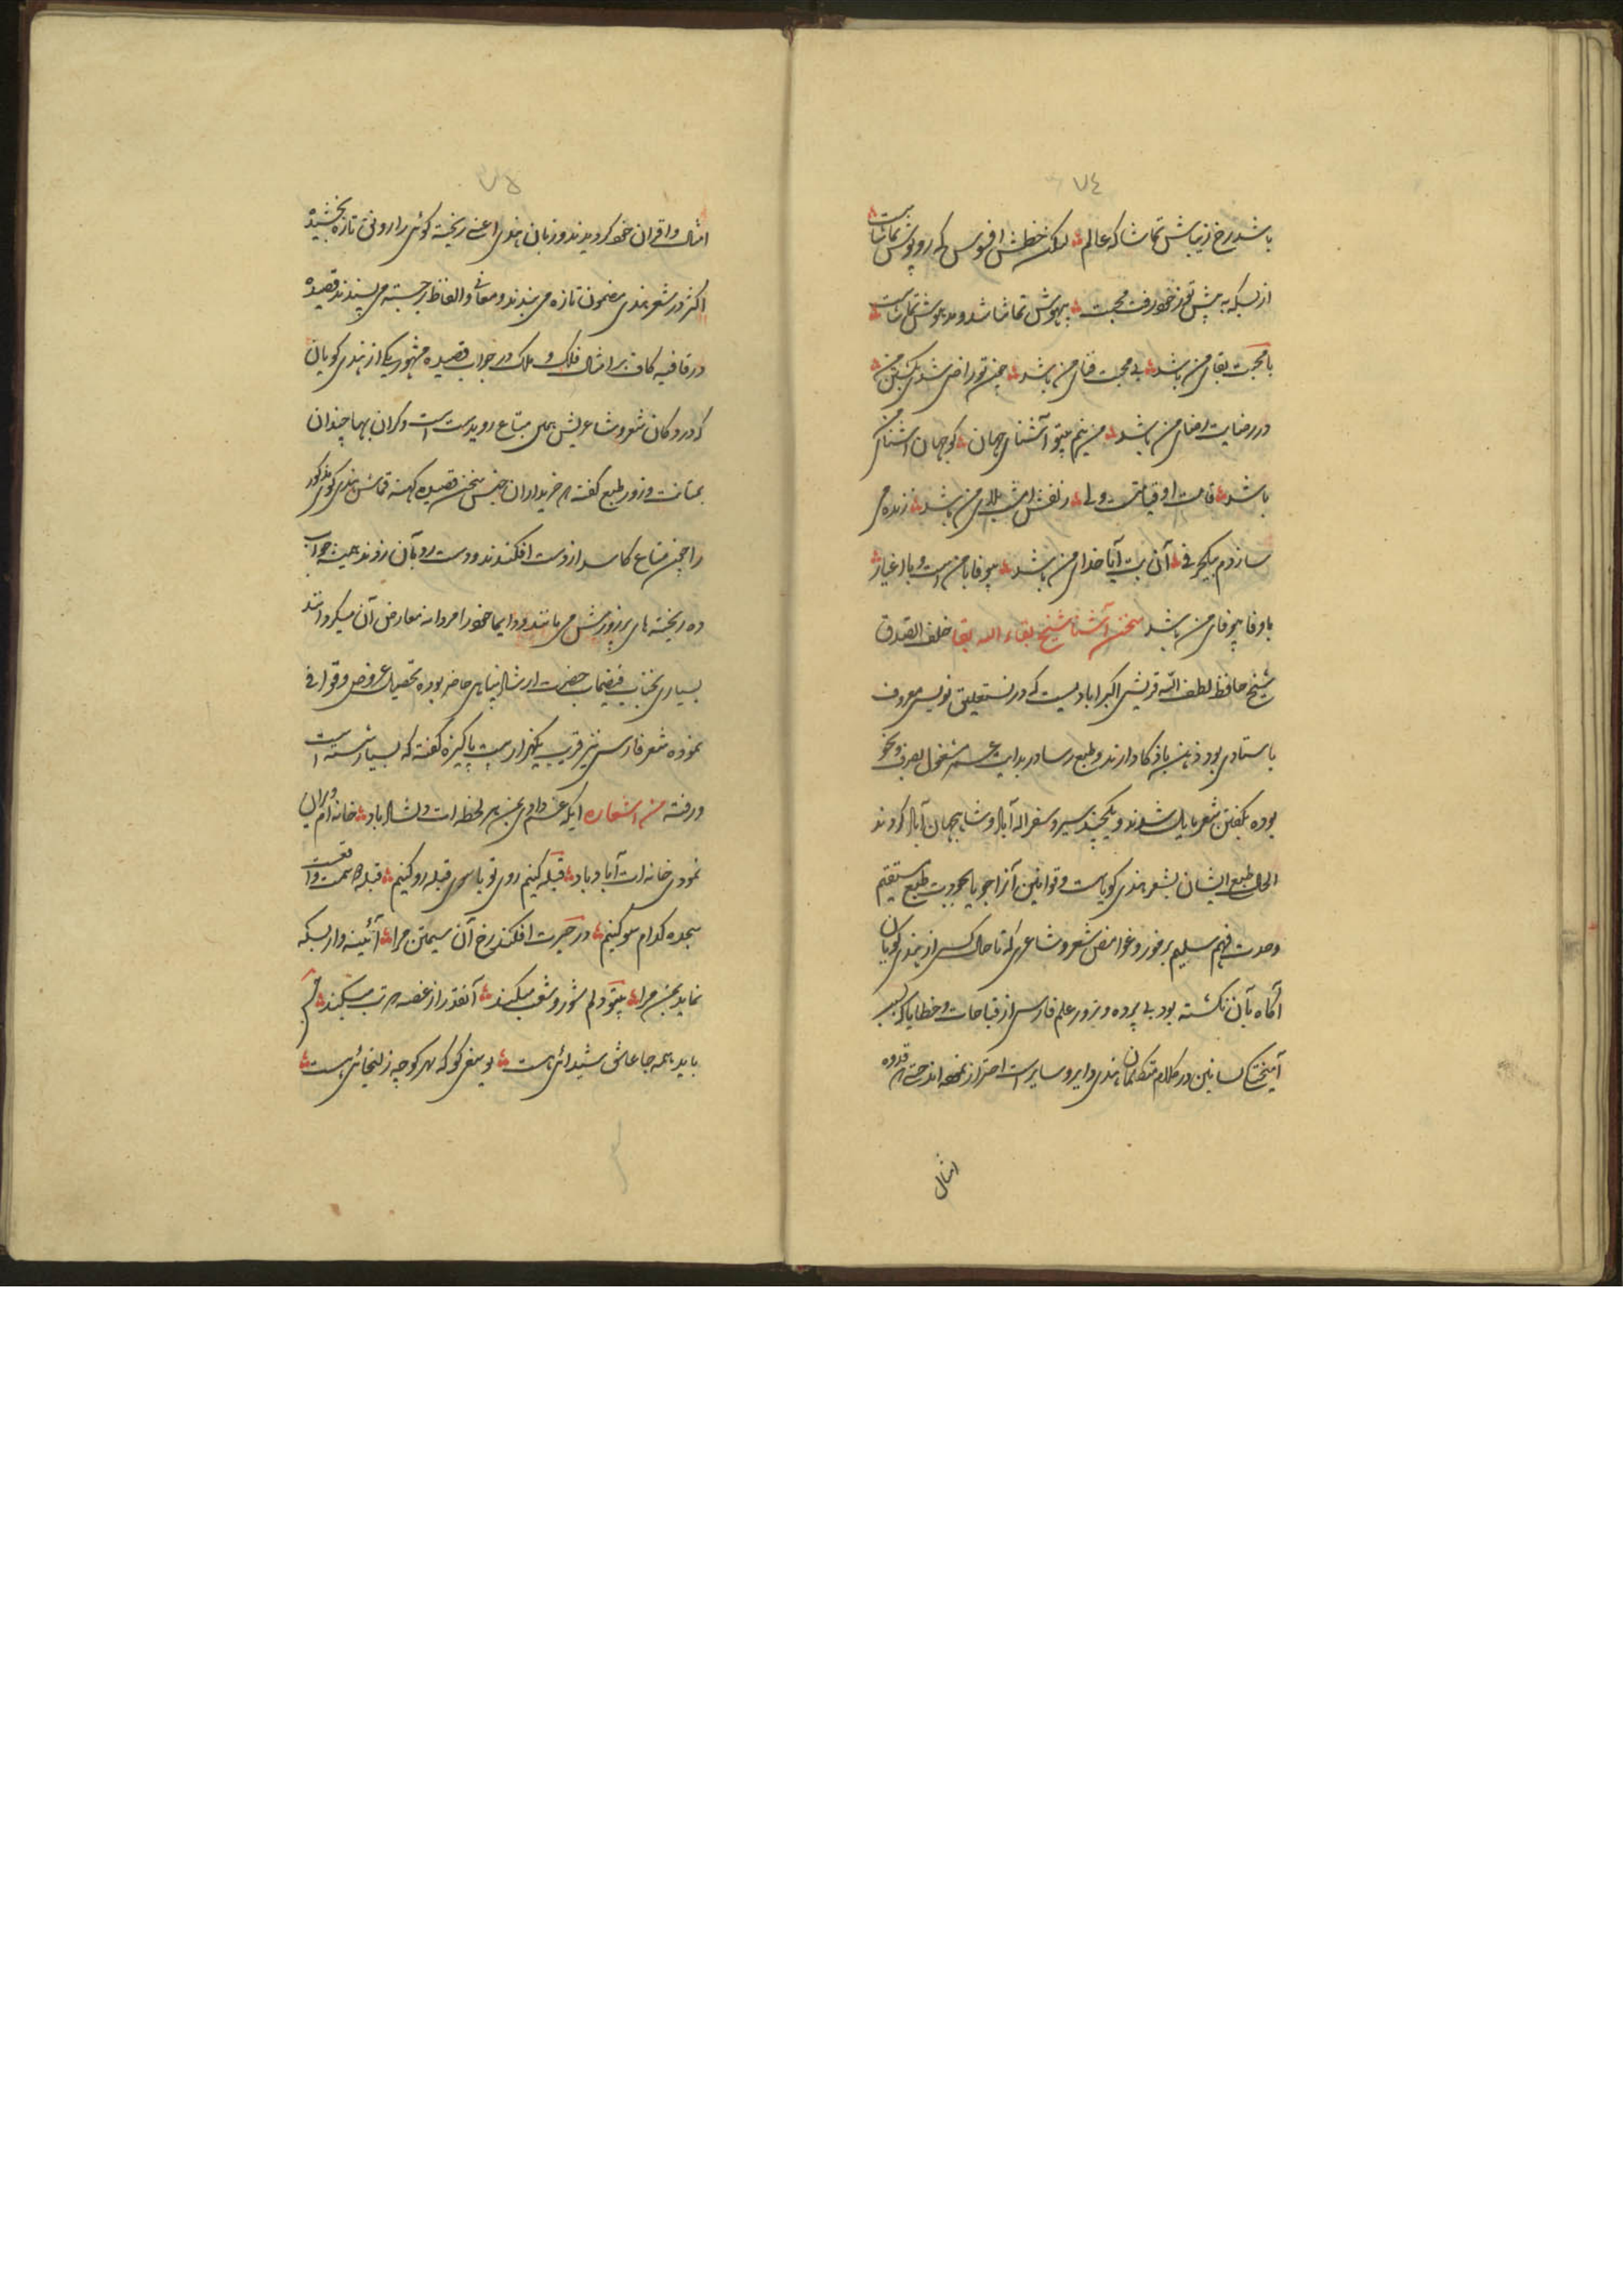 ٧٤
باشد رخ زیباش تماشاکه عالم لیکن خطش افسوس که روپوش تماشاست
ازبسکه به پیش تو ز خود رفت محبت بیهوش تماشا شد و مدهوش تماشاست
با محبت بقای من باشد بی محبت فنای من باشد چون تو راضی شدی بکشتن من
در رضایت رضای من باشد من نیم بیتو آشنای جهان کو جهان آشنای من
باشد قامت او قیامتست ولی زلفش بلای من باشد زنده می
سازدم بیکحرفی آن بت آیا خدای من باشد بیوفا با من است و با اغیار
باوفا بیوفای من باشد سخن آشنا شیخ بقاء الله بقا خلف الصدق
شیخ حافظ لطف الله قریشی اکبرابادیست که در نستعلیق نویسی معروف
باستادی بود ذهن با ذکا دارند و طبع رسا در بدایت مشغول بصرف و نحو
بوده بگفتن شعر مایل شدند و یکچند سیر و سفر اله آباد و شاهجهان آباد کردند
الحال طبع ایشان بشعر هندی کویاست و قوانین آنرا جویا بجودت طبع مستقیم
وحدت فهم سلیم برموز و غوامض شعر و شاعری که تا حال کسی از هندی کویان
آگاه بآن نگشته بود پی برده و بزور علم فارسی از قباحات و خطایا که بسبب
آمیختگی لسانین در کلام متکلمان هندی دایر و سایر است احتراز نموده اند حتی که قدوه
امثال
٧٥
امثال و اقران خود گردیدند و زبان هندی اعنی ریخته گوئی را رونق تازه بخشیدند
اکثر در شعر هندی مضمون تازه می بندند و معانی و الفاظ برجسته می پسندند قصیده
در قافیه کاف برامثال فلک و ملک در جواب قصیده مشهور یکی از هندی کویان
که در دکان شعر و شاعریش همین متاع رویدست است و گران بها چندان
بمتانت و زور طبع گفته که خریداران جنس سخن قصیده کهنه قماش هندی گوی مذکور
را چون متاع کاسد از دست افکندند و دست رد بآن زدند همیشه جواب
ده ریخته های پرزورش می باشند و دایما خود را مردانه معارض آن میگردانند
بسیاری بجناب فیضماب حضرت ارشاد پناهی حاضر بوده تحصیل عروض و قوافی
نموده شعر فارسی نیز قریب یکهزار بیت پاکیزه گفته که بسیار شسته است
و رفته من اشعاره ایکه غم دادی بمن هر لحظه ات دلشاد باد خانه ام ویران
نمودی خانه ات آباد باد قبله کنیم روی تو یا سوی قبله رو کنیم قبله دو سمت واقعست
سجده کدام سو کنیم در حیرت افکند رخ آن سیمتن مرا آئینه وار بسکه
نماید بمن مرا بیتو دلم شور و شغب میکند آنقدر از غصه که تب میکند
باید همه جا عاشق شیدائی هست یوسفی گو که بهر کوچه زلیخائی هست